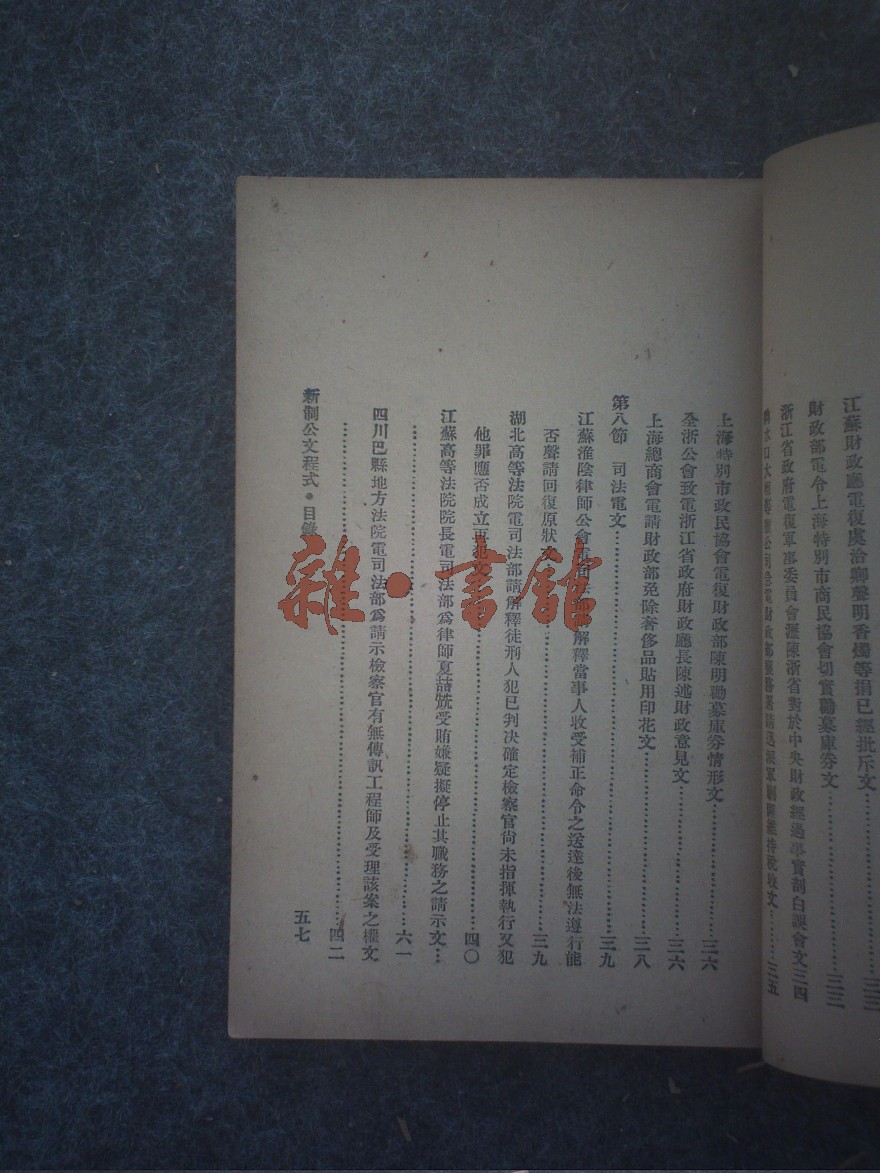 江蘇財政廳電復虞洽鄉聲明香燭等捐已經批斥文⋯⋯三三
財政部電令上海特別市商民協會切實勸募庫券文⋯⋯三三
浙江省政府電復軍事委員會瀝陳浙省對於中央財政經過事實剖白誤會文三四
維持稅收文⋯⋯三五
上海特別市政民協會電復財政部陳明勸募庫券情形文⋯⋯三六
全浙公會致電浙江省政府財政廳長陳述財政意見文⋯⋯三六
上海總商會電請財政部免除奢侈品貼用印花文⋯⋯三八
第八節 司法電文⋯⋯三九
江蘇淮陰律師公會電司法部解釋當事人收受補正命令之送達後無法遵行能
否聲請回復原狀文⋯⋯三九
湖北高等法院電司法部請解釋徒刑人犯已判決確定檢察官尚未指揮執行又犯
他罪應否成立再犯文⋯⋯四〇
江蘇高等法院院長電司法部爲律師夏喆兟受賄嫌疑擬停止其職務之請示文⋯
⋯⋯六一
四川巴縣地方法院電司法部爲請示檢察官有無傳訊工程師及受理該案之權文
⋯⋯四二
新制公文程式•目錄
五七
雜•書館